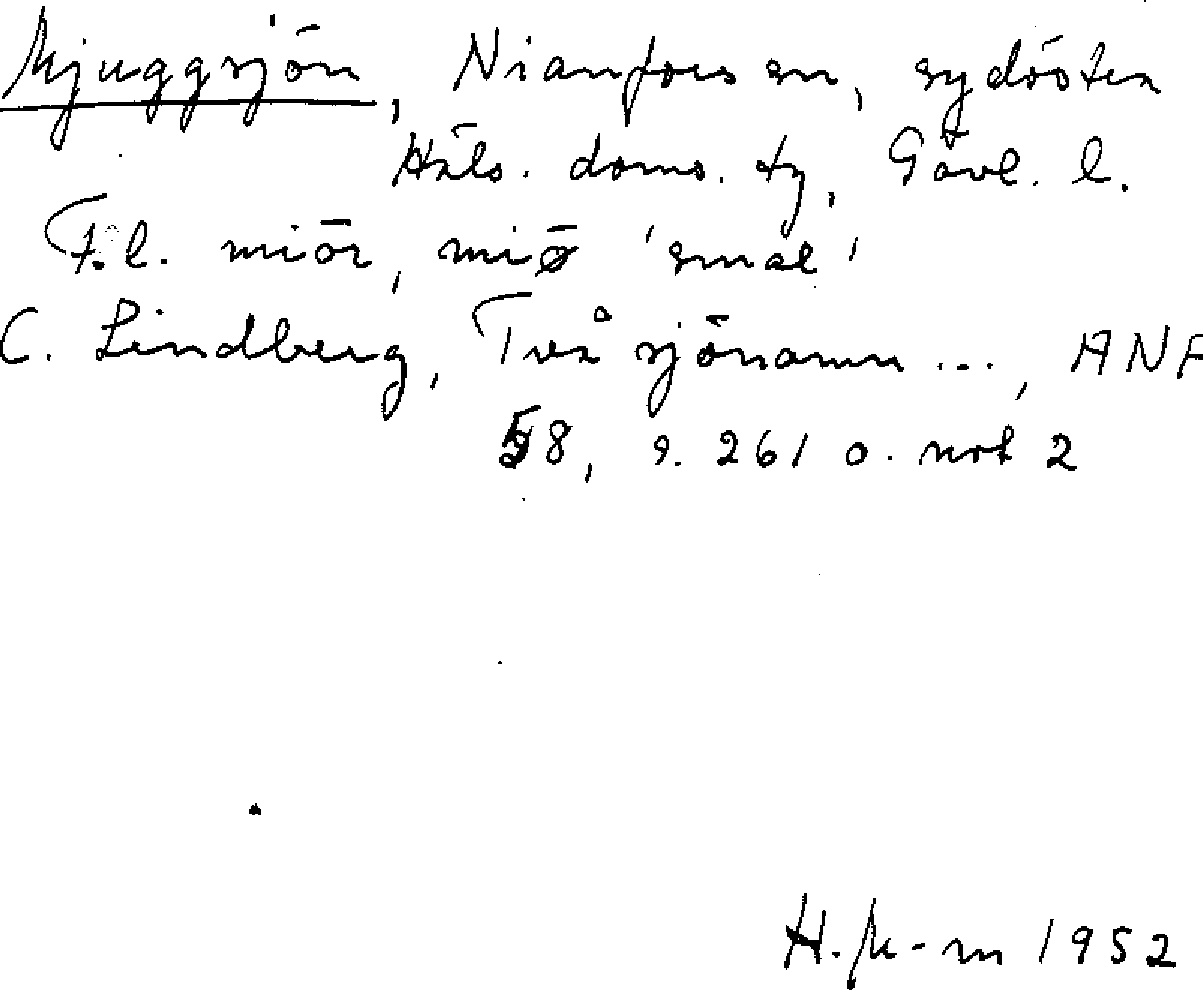 Mjuggsjön, Nianfors sn, sydöstra
Häls. doms. ty, Gävl. l.
F.l. miōr, miø̄ 'smal'
C. Lindberg, Två sjönamn ..., ANF
58, s. 261 o. not 2
H. M-m 1952